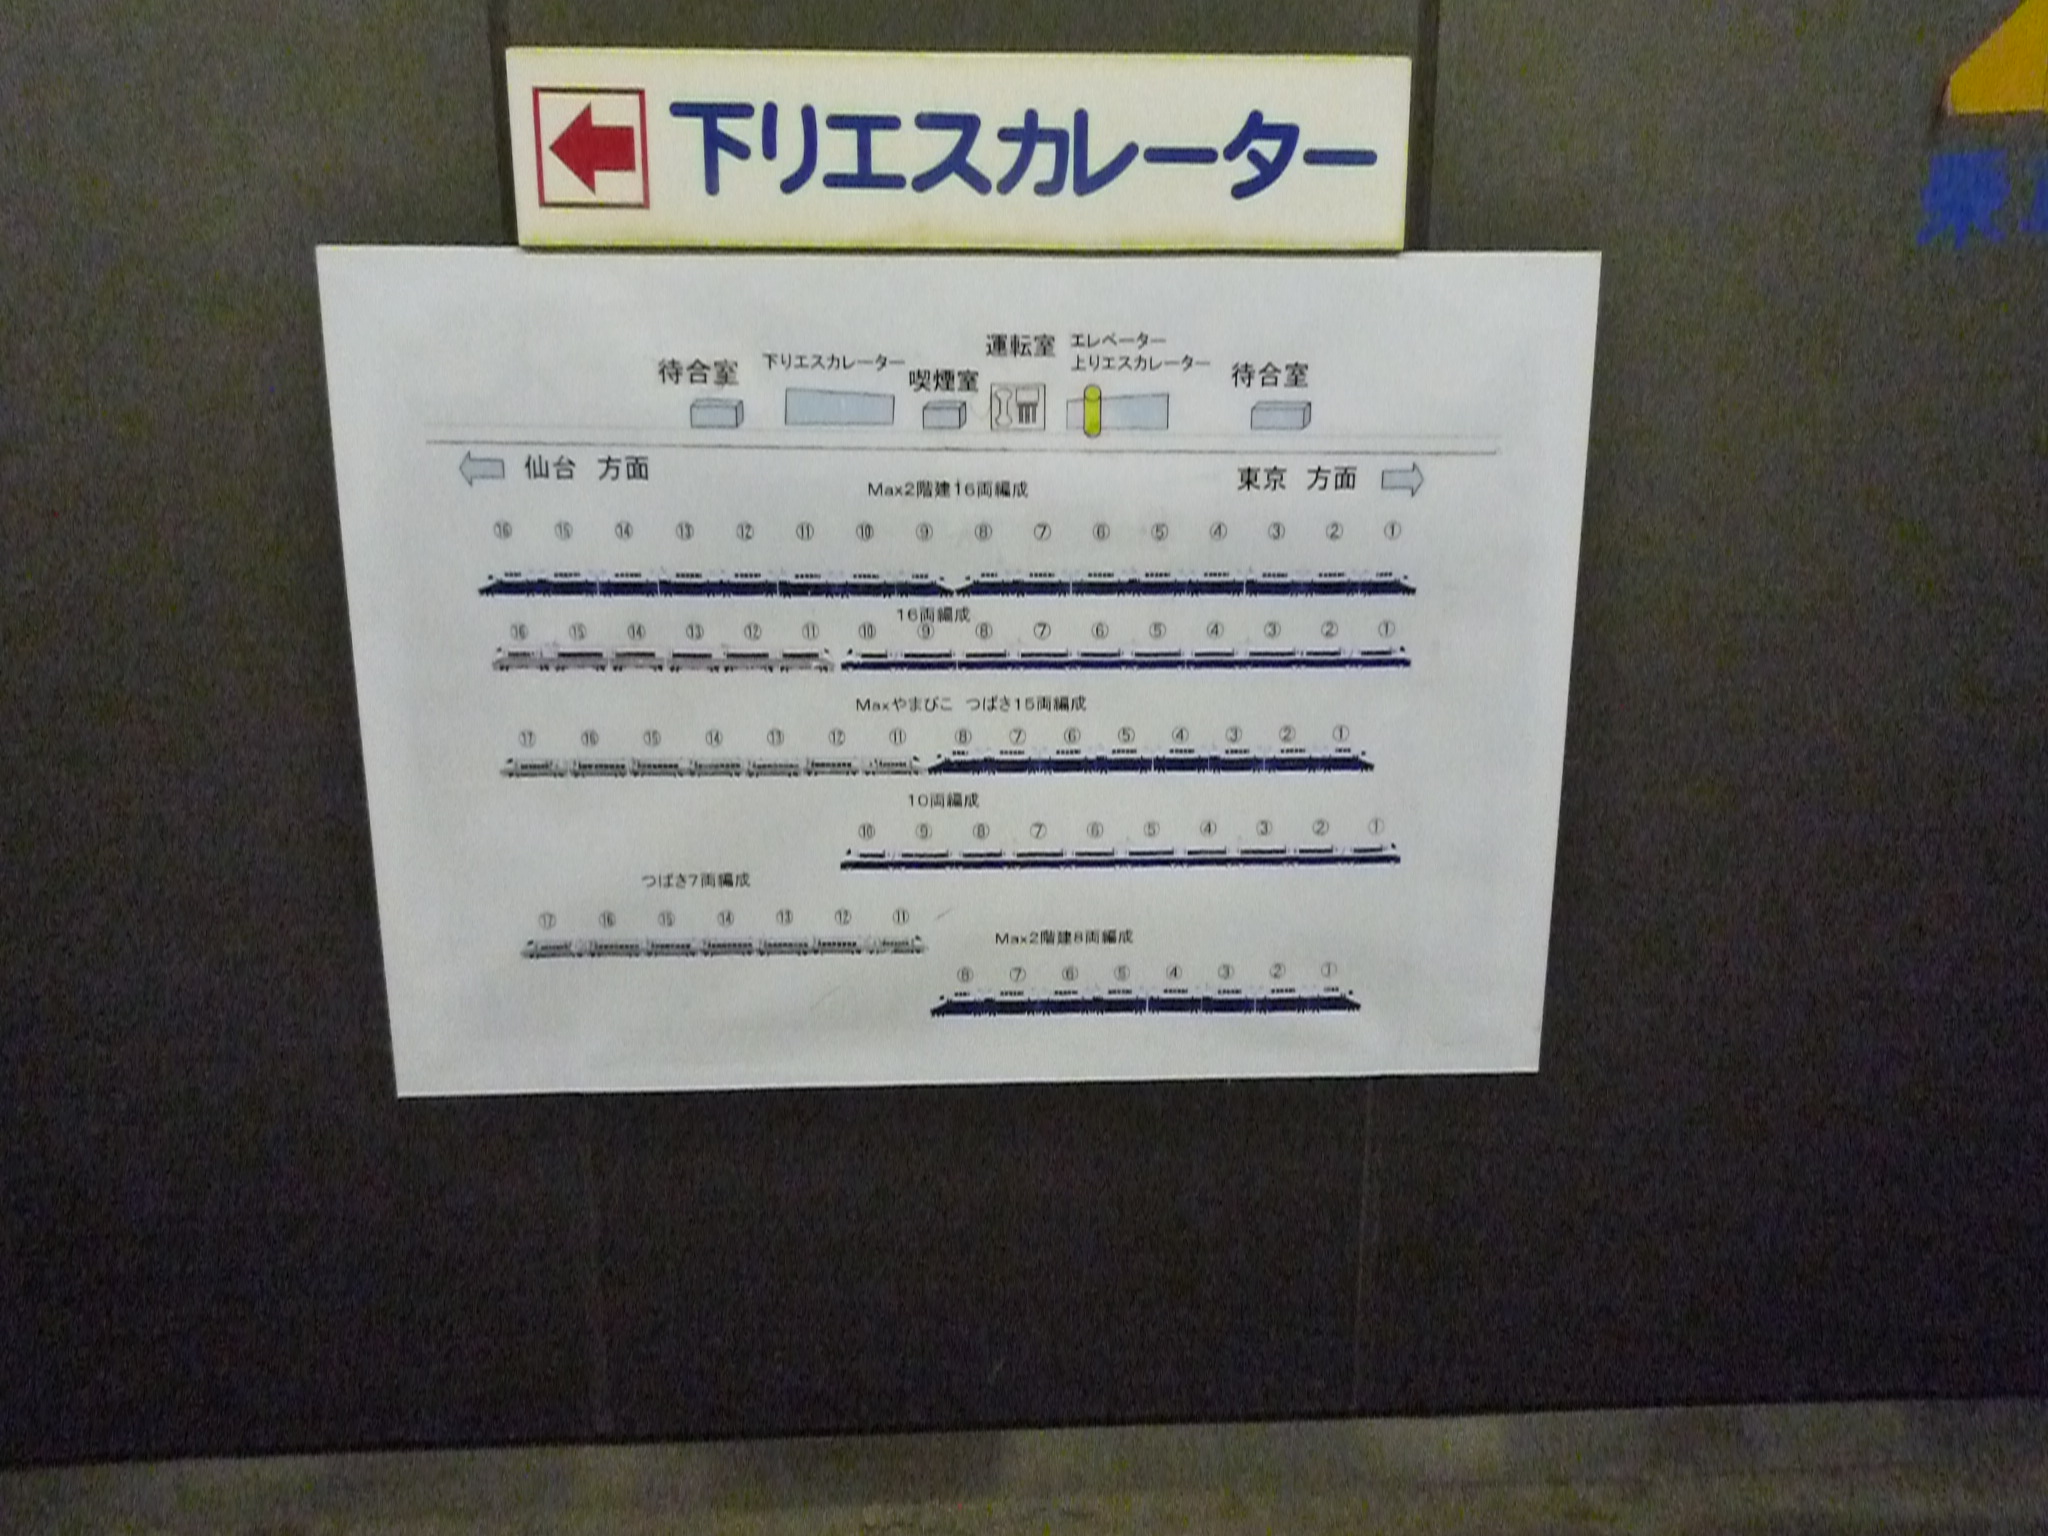 下りエスカレーター
運転室 エレベーター
待合室 下りエスカレーター 喫煙室 上りエスカレーター 待合室
仙台 方面 東京 方面
Max2階建16両編成
⑯ ⑮ ⑭ ⑬ ⑫ ⑪ ⑩ ⑨ ⑧ ⑦ ⑥ ⑤ ④ ③ ② ①
16両編成
⑯ ⑮ ⑭ ⑬ ⑫ ⑪ ⑩ ⑨ ⑧ ⑦ ⑥ ⑤ ④ ③ ② ①
Maxやまびこ つばさ15両編成
⑰ ⑯ ⑮ ⑭ ⑬ ⑫ ⑪ ⑧ ⑦ ⑥ ⑤ ④ ③ ② ①
10両編成
⑩ ⑨ ⑧ ⑦ ⑥ ⑤ ④ ③ ② ①
つばさ7両編成
⑰ ⑯ ⑮ ⑭ ⑬ ⑫ ⑪
Max2階建8両編成
⑧ ⑦ ⑥ ⑤ ④ ③ ② ①
東